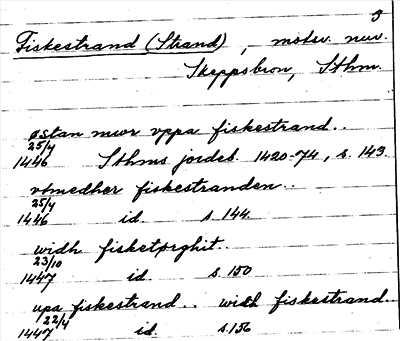 3
Fiskestrand (Strand), motsv. nuv.
Skeppsbron, Sthm.
østan mwr vppa fiskestrand..
25/4
1446 Sthms jordeb. 1420-74, s. 143.
vtmedher fiskestranden..
25/4
1446 id. s. 144.
widh fisketorghit..
23/10
1447 id. s. 150
upa fiskestrand.. widh fiskestrand..
22/4
1447 id. s. 156